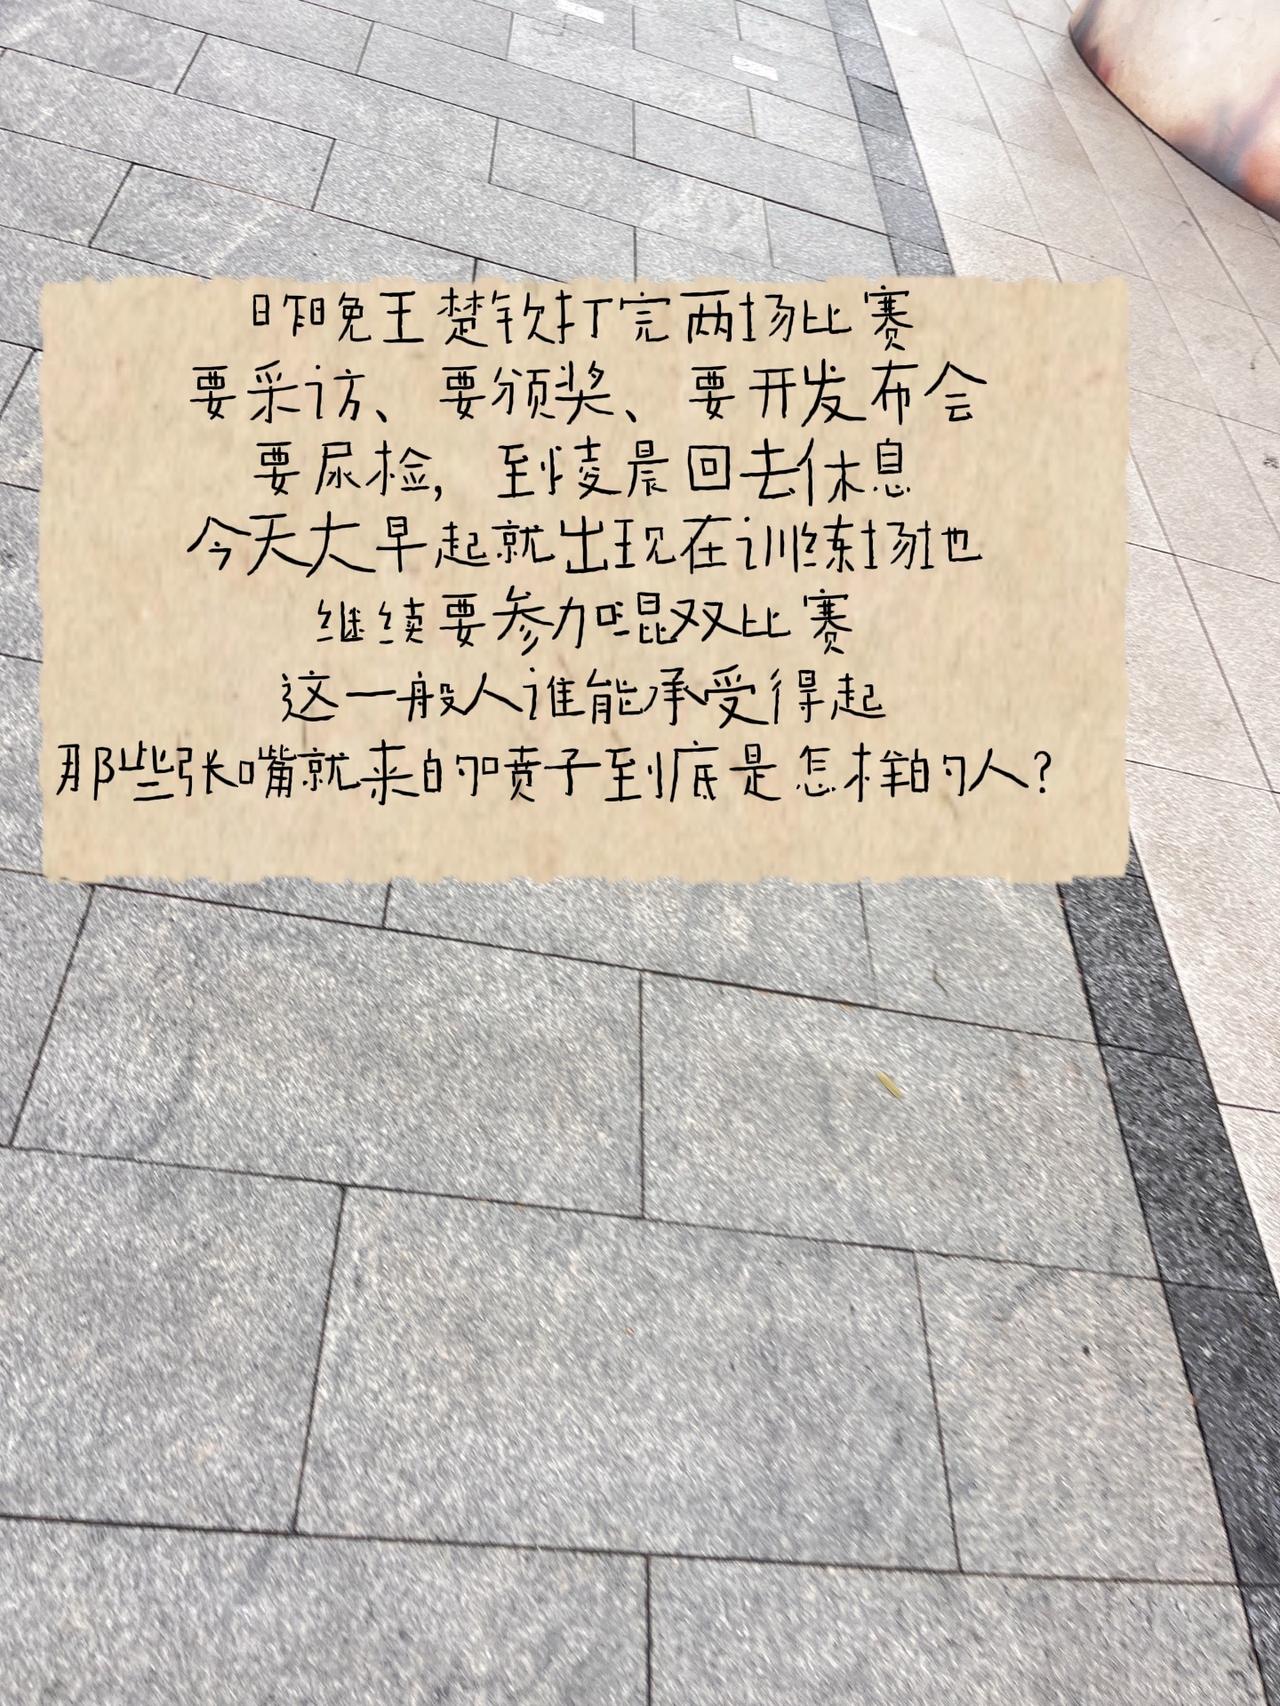 昨晚王楚钦打完两场比赛
要采访、要颁奖、要开发布会
要尿检，到凌晨回去休息
今天大早起就出现在训练场地
继续要参加混双比赛
这一般人谁能承受得起
那些张嘴就来的喷子到底是怎样的人？